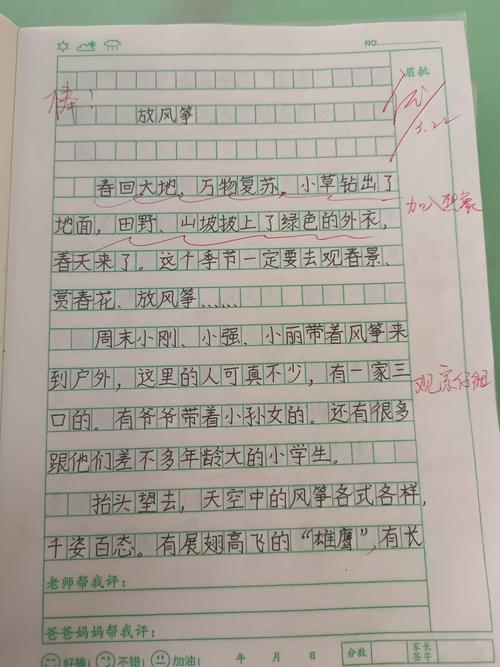 NO.
眉批
棒!
优
3.22
放风筝
春回大地,万物复苏,小草钻出了
地面,田野、山坡披上了绿色的外衣,
加入想象
春天来了。这个季节一定要去观春景、
赏春花、放风筝……
周末小刚、小强、小丽带着风筝来
到户外,这里的人可真不少,有一家三
观察仔细
口的。有爷爷带着小孙女的。还有很多
跟他们差不多年龄大的小学生。
抬头望去,天空中的风筝各式各样,
千姿百态。有展翅高飞的“雄鹰”,有长
老师帮我评:
爸爸妈妈帮我评:
好棒! 不错! 加油: 年 月 日 分数 家长签字